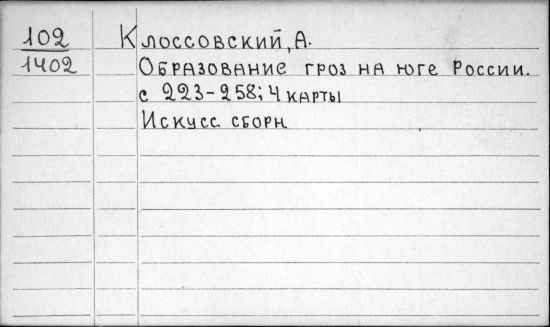 102 Клоссовский, А.
1402 Образование гроз на юге России.
с 223-258; 4 карты
Искусс. сборн